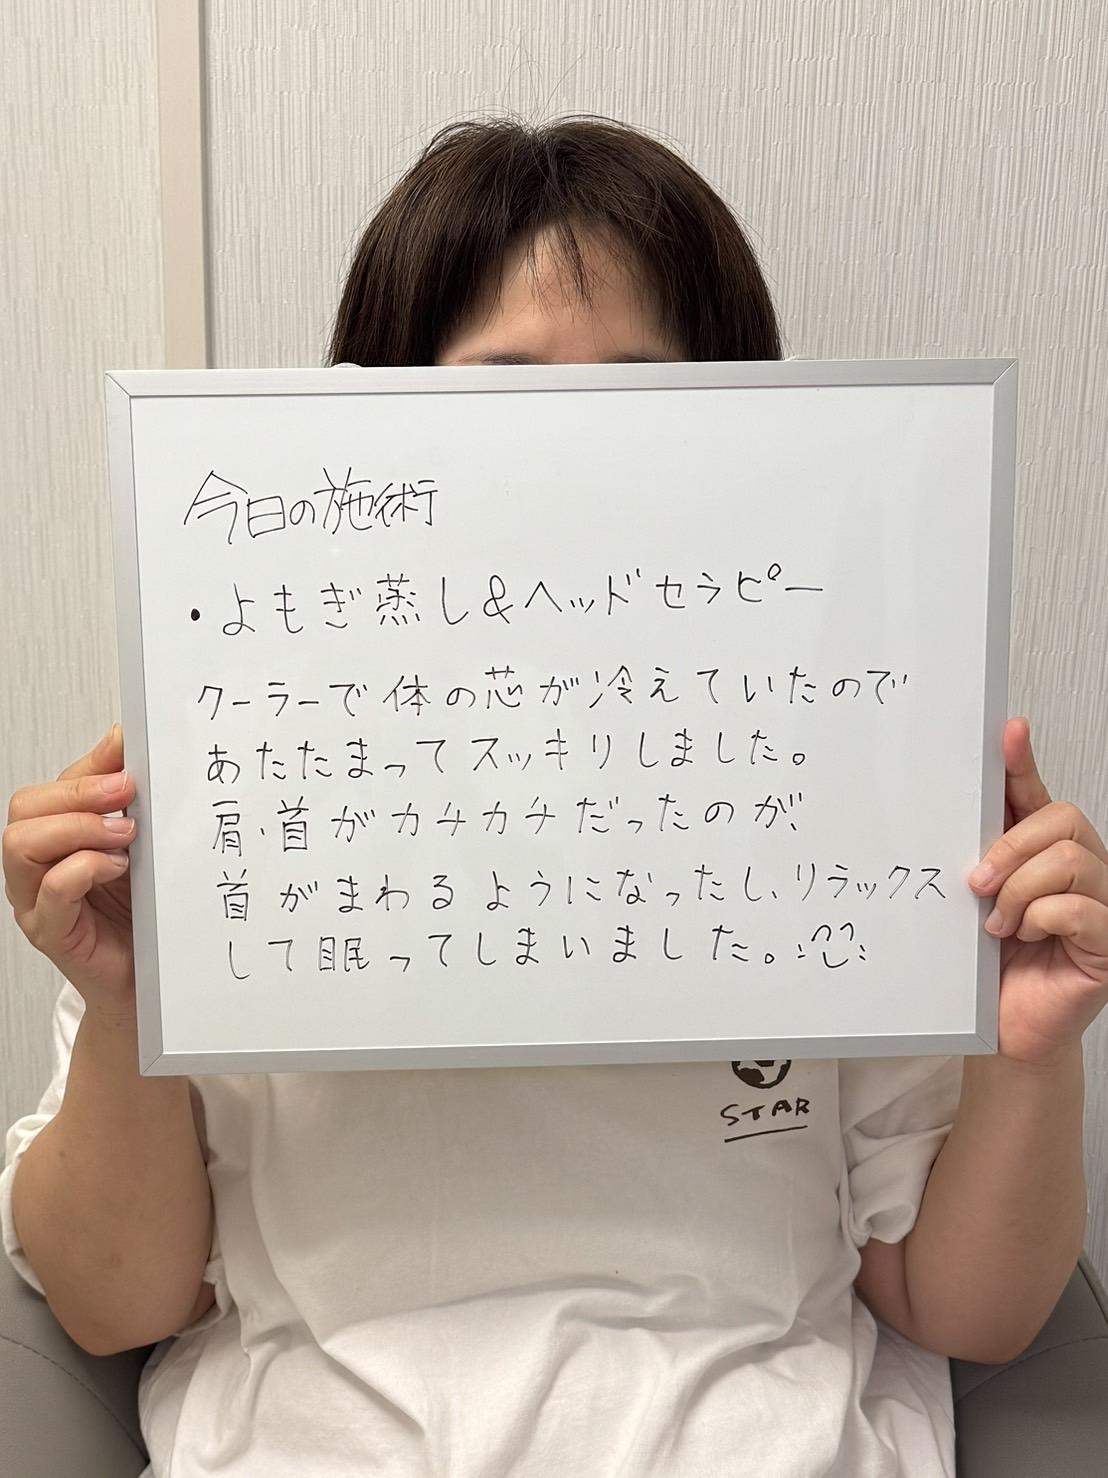 今日の施術
・よもぎ蒸し&ヘッドセラピー
クーラーで体の芯が冷えていたので
あたたまってスッキリしました。
肩・首がカチカチだったのが、
首がまわるようになったし、リラックス
して眠ってしまいました。
STAR